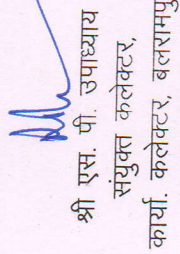 श्री एस. पी. उपाध्याय
संयुक्त कलेक्टर,
कार्या. कलेक्टर, बलरामपुर